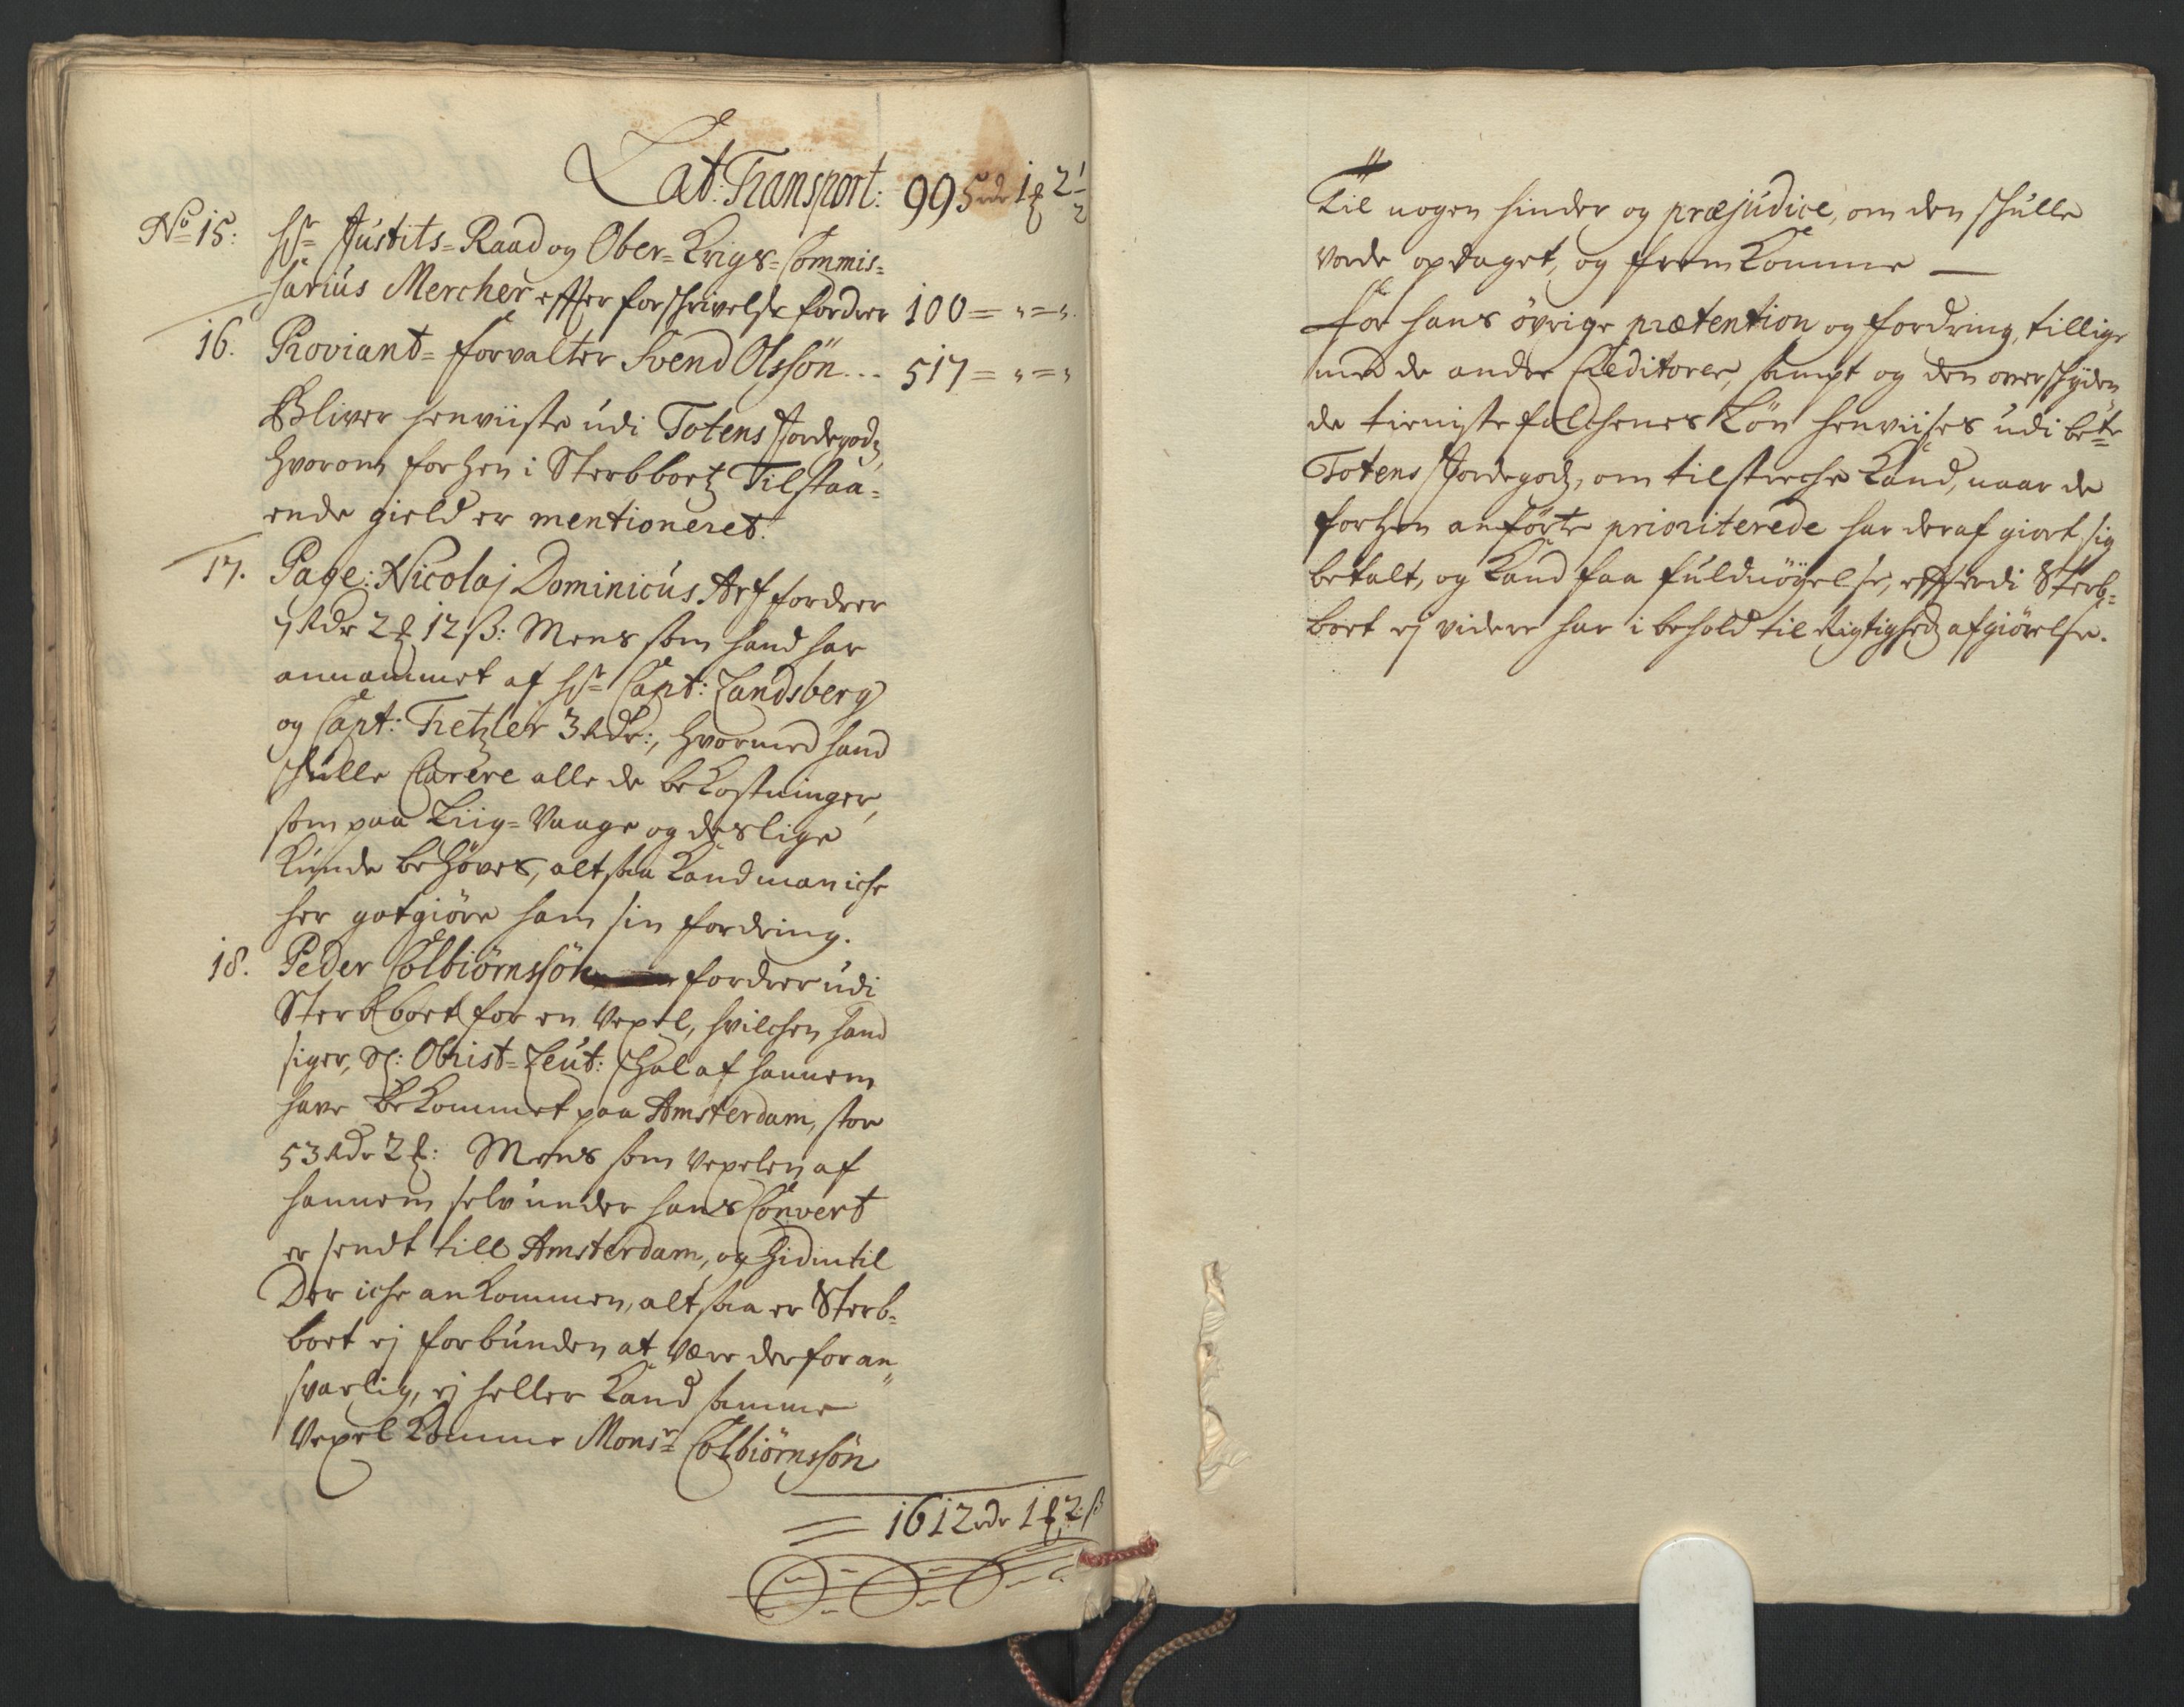 Lat: Transport: 995 rdr 1 ℔ 2 1/2
No 15: Hr Justits=Raad og Ober=Krigs=Commis=
sarius Mercher effter forschrivelse fordrer 100 = " = "
16. Proviant=forvalter Svend Olssön... 517 = " = "
Bliver henviiste udi Totens Jordegodz,
hvorom forhen i Sterbboetz Tilstaa=
ende gield er mentioneret.
17. Page: Nicolaj Dominicus Arf fordrer
7 Rdr 2 ℔ 12 ß: Mens som hand har
annammet af Hr Capt: Landsberg
og Capt: Fretzler 3 Rdr:, hvormed hand
schulle Clarere alle de bekostninger,
som paa Liig=Vaage og deslige
kunde behöves, alt saa kand man iche
her gotgiöre ham sin fordring.
18. Peder Colbiörnssön fordrer udi
Sterbboet for en Vexel, hvilchen hand
siger, Sl: Obrist=Leut: schal af hannem
have bekommet paa Amsterdam, stor
53 Rdr 2 ℔: Mens som Vexelen af
hannem selv under hans Convert
er sendt till Amsterdam, og hidintil
Der iche ankommen, alt saa er Sterb=
boet ej forbunden at være derfor an„
svarlig, ej heller kand samme
Vexel komme Monsr Colbiörnssön
= 1612 rdr 1 ℔ 2 ß
"
Til nogen hinder og præjudice, om den schulle
vorde opdaget, og frem komme —
For hans övrige prætention og fordring, tillige
med de andre Creditorer, sampt og den overschyden„
de tienistefolchenes Lön henviises udi bete
Totens Jordegodz, om tilstreche kand, naar de
forhen anförte prioriterede har deraf giort sig
betalt, og kand faa fuldnöyelse, effterdi Sterb=
boet ej videre har i behold til Rigtighedz afgiörelse.